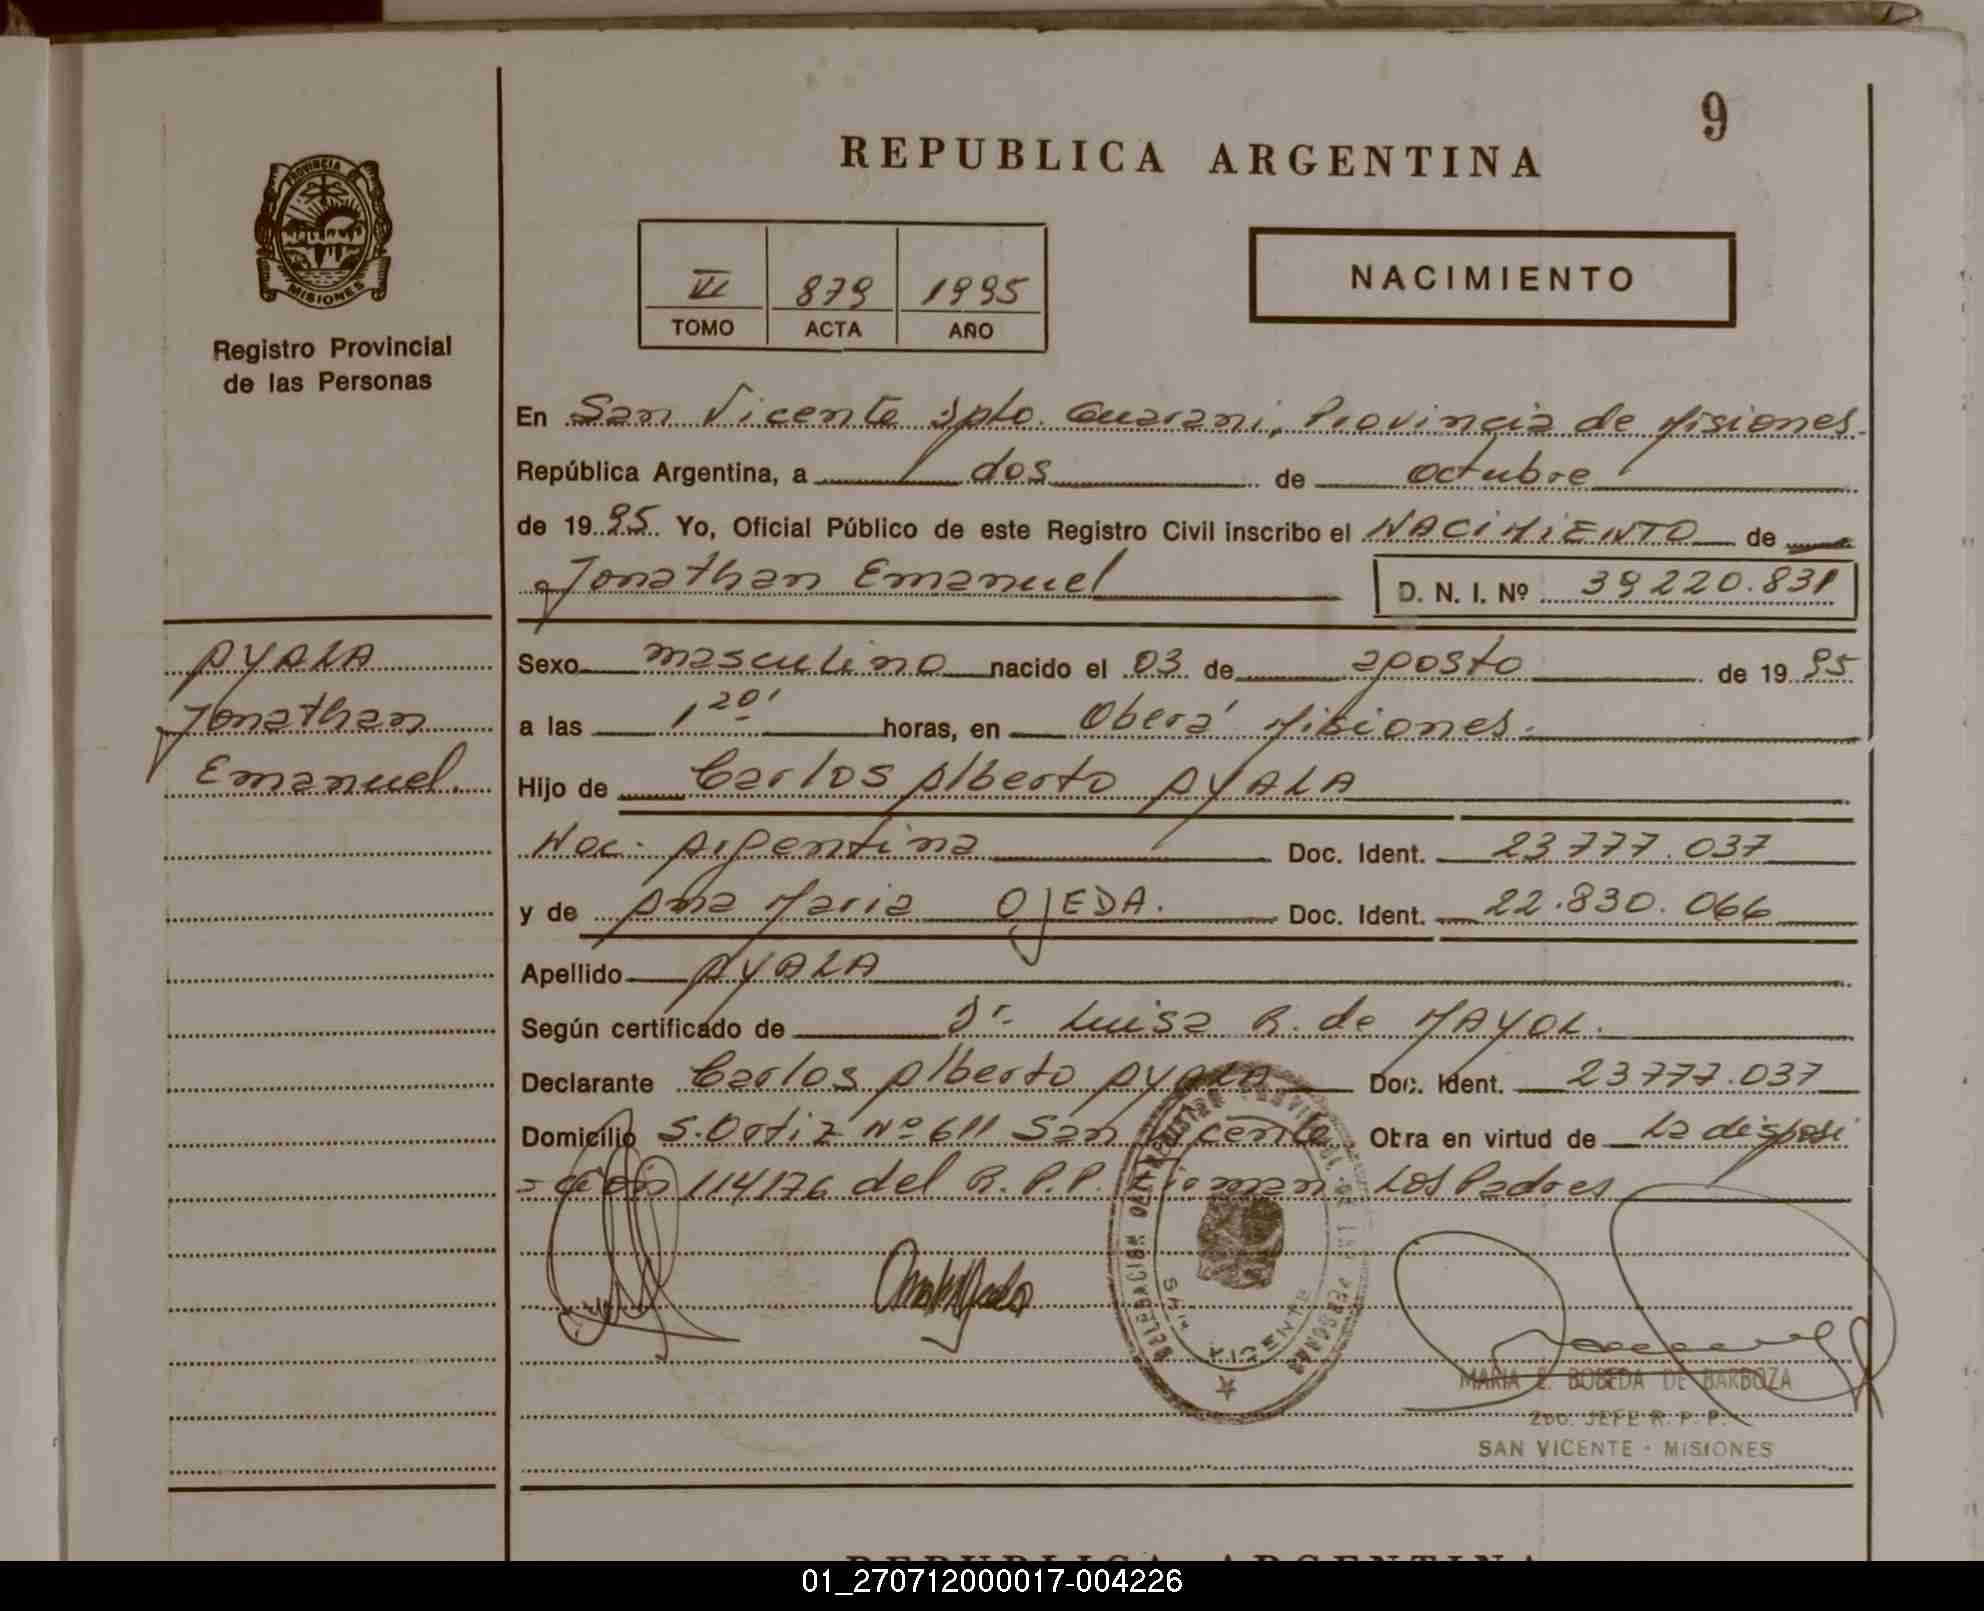 9
REPUBLICA ARGENTINA
PROVINCIA DE
MISIONES
Registro Provincial
de las Personas
VI 879 1995
TOMO ACTA AÑO
NACIMIENTO
En San Vicente Dpto. Guarani, Provincia de Misiones.
República Argentina, a dos de octubre
de 1995. Yo, Oficial Público de este Registro Civil inscribo el NACIMIENTO de
Jonathan Emanuel D. N. I. Nº 39220.831
AYALA
Jonathan
Emanuel.
Sexo masculino nacido el 03 de agosto de 1995
a las 1 20' horas, en Oberá Misiones.
Hijo de Carlos Alberto AYALA
Nac. Argentina Doc. Ident. 23777.037
y de Ana Maria OJEDA. Doc. Ident. 22.830.066
Apellido AYALA
Según certificado de Dr. Luisa R. de MAYOL.
Declarante Carlos Alberto AYALA Doc. Ident. 23777.037
Domicilio S. Ortiz Nº 611 San Vicente Obra en virtud de La disposi
=ción 114176 del R.P.P. Firman Los Padres
DELEGACION DEL REGISTRO PROVINCIAL DE LAS PERSONAS
SAN VICENTE
MARIA E. BOBEDA DE BARBOZA
2do. JEFE R. P. P.
SAN VICENTE - MISIONES
REPUBLICA ARGENTINA
01_270712000017-004226